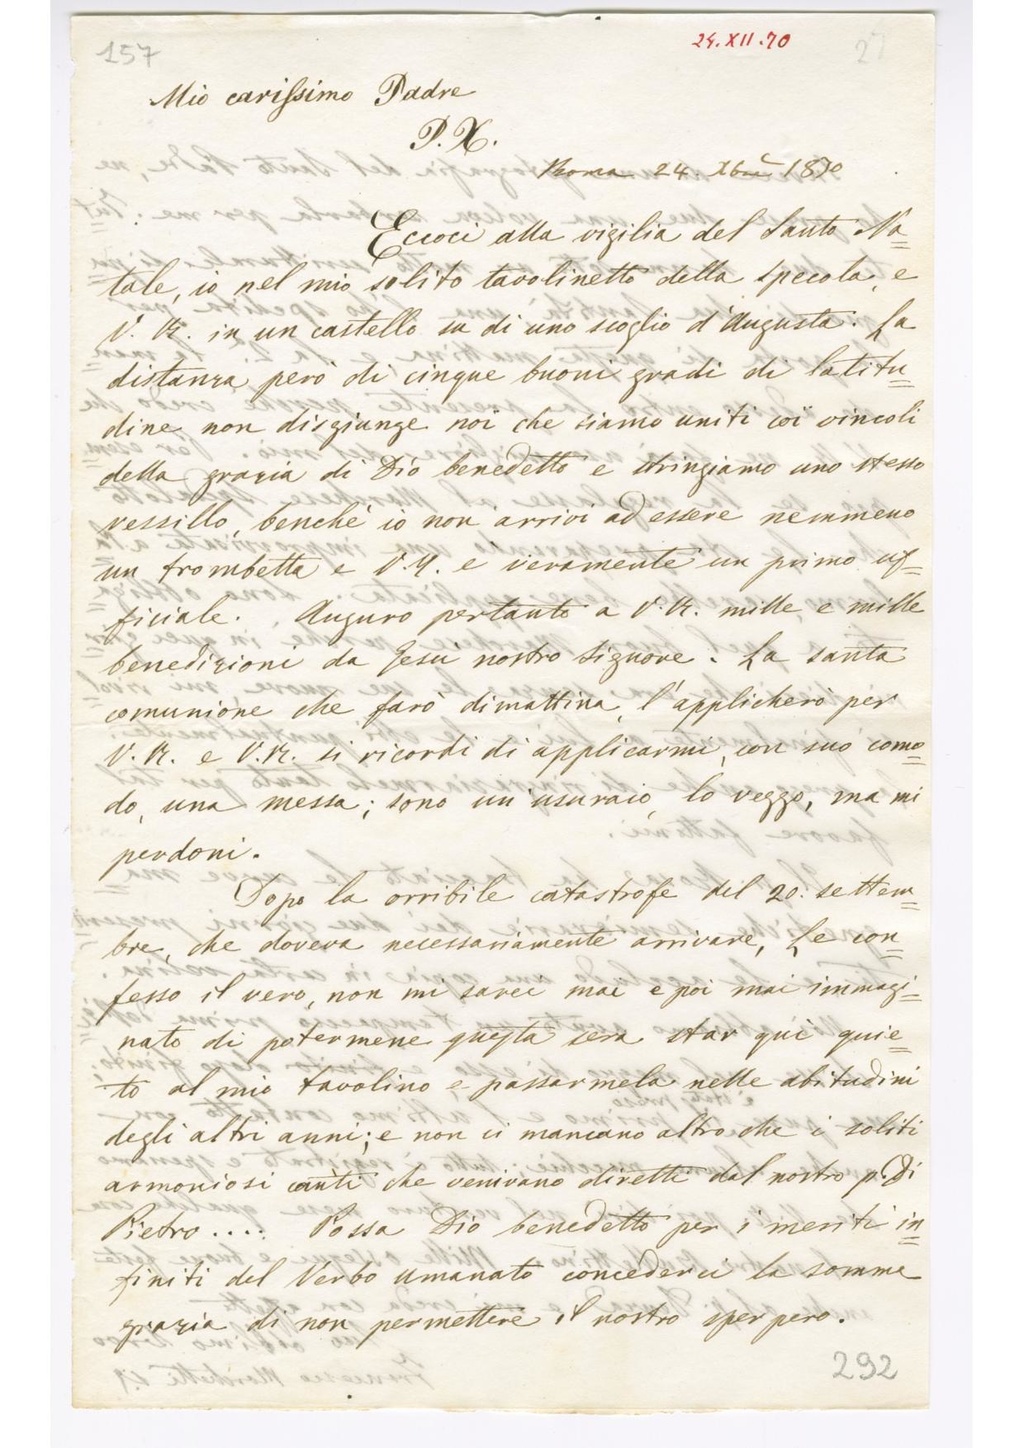 157
24.XII.70
27
Mio carissimo Padre
P. X.
Roma 24. Xbre 1870
Eccoci alla vigilia del Santo Na=
tale, io nel mio solito tavolinetto della specola, e
V. R. in un castello su di uno scoglio d'Augusta. La
distanza però di cinque buoni gradi di latitu=
dine non disgiunge noi che siamo uniti coi vincoli
della grazia di Dio benedetto e stringiamo uno stesso
vessillo, benchè io non arrivi ad essere nemmeno
un trombetta e V. R. è veramente un primo uf=
ficiale. Auguro pertanto a V. R. mille, e mille
benedizioni da Gesù nostro Signore. La santa
comunione che farò dimattina, l'applicherò per
V. R. e V. R. si ricordi di applicarmi, con suo como=
do, una messa; sono un'usuraio, lo veggo, ma mi
perdoni.
Dopo la orribile catastrofe del 20. settem=
bre, che doveva necessariamente arrivare, Le con=
fesso il vero, non mi sarei mai e poi mai immagi=
nato di potermene questa sera star quì quie=
to al mio tavolino e passarmela nelle abitudini
degli altri anni; e non ci mancano altro che i soliti
armoniosi canti che venivano diretti dal nostro p. Di
Pietro .... Possa Dio benedetto per i meriti in=
finiti del Verbo umanato concederci la somma
grazia di non permettere il nostro sperpero.
292